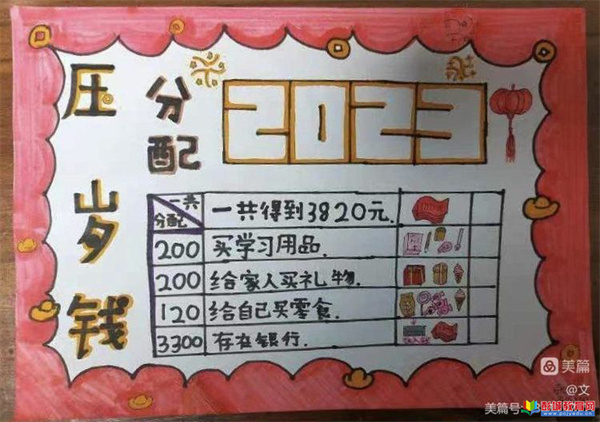 压岁钱
分配
2023
一共
分配
一共得到3820元.
200 买学习用品.
200 给家人买礼物.
120 给自己买零食.
3300 存在银行.
美篇
@文
美篇号